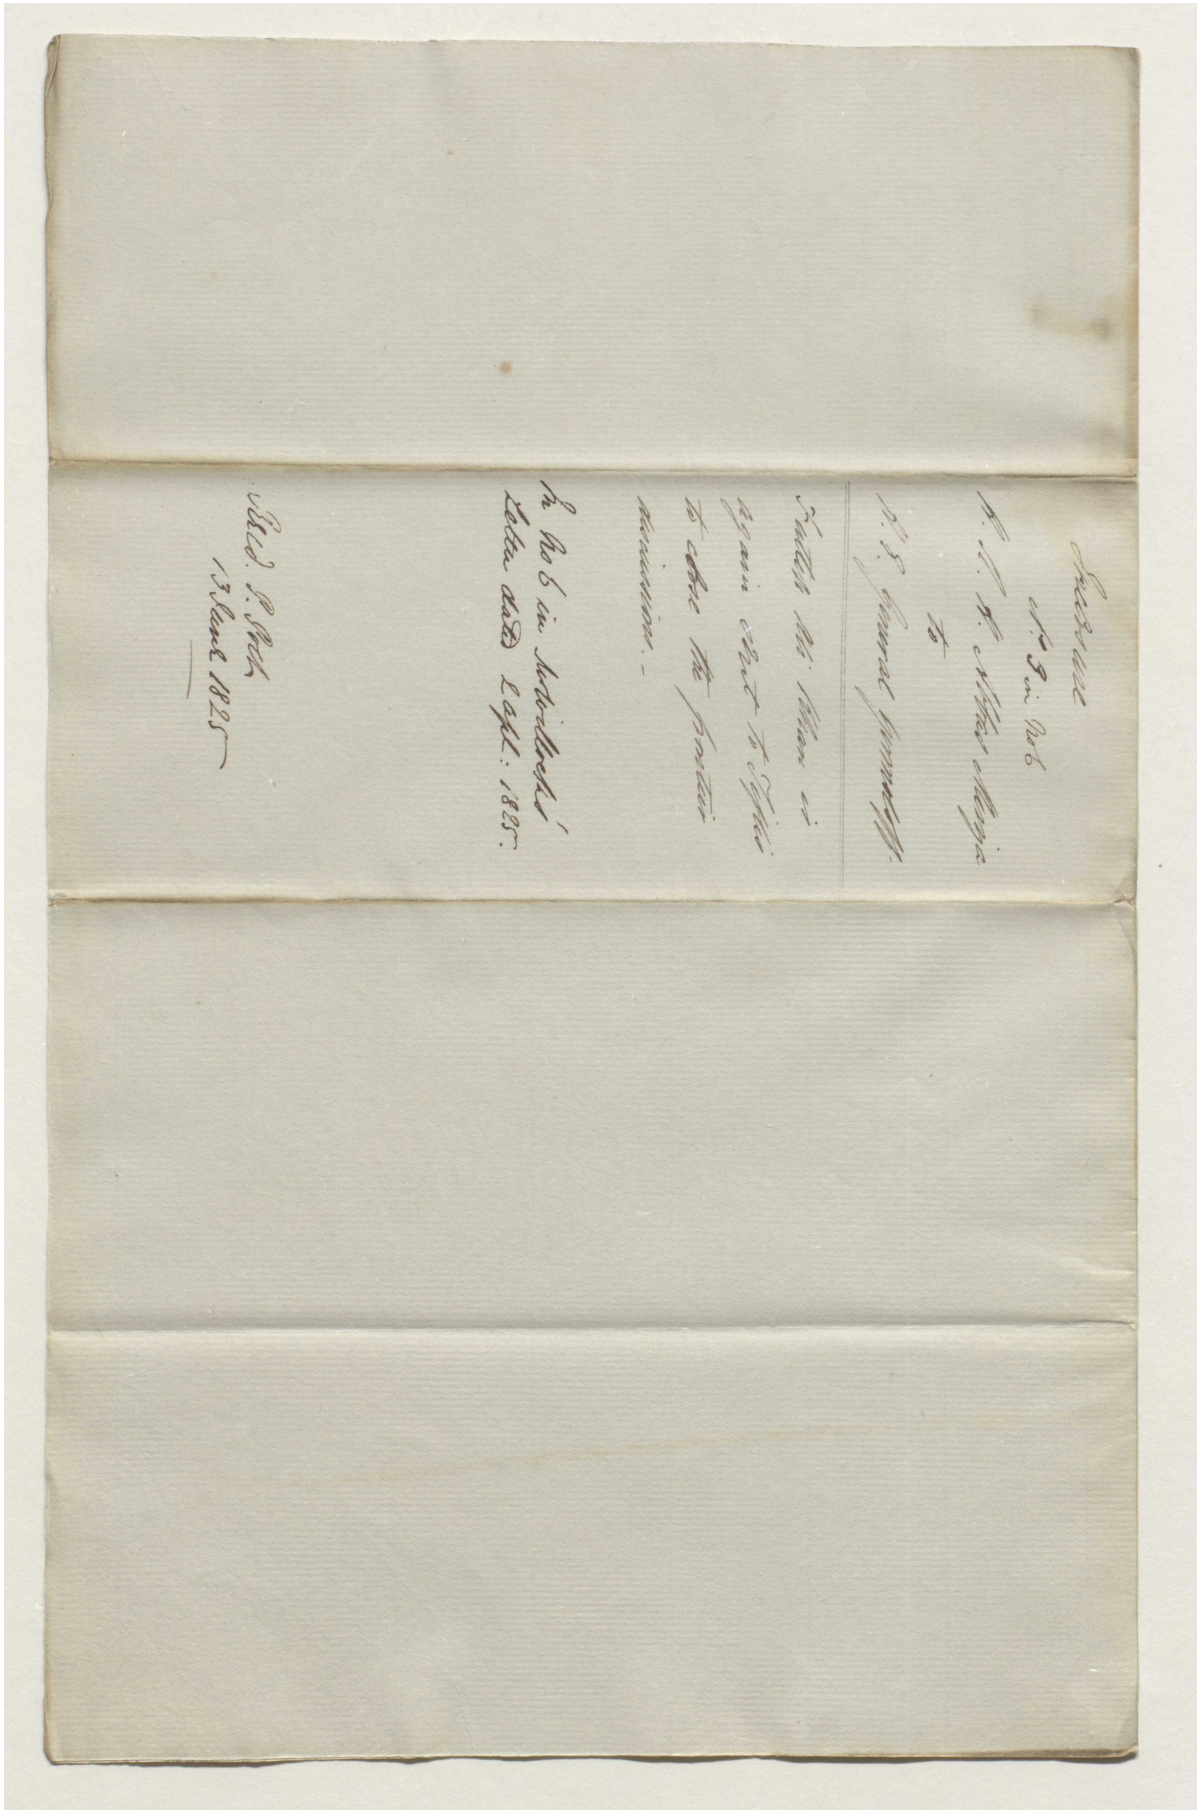 Enclosure
No. 9 in No 6
H. R. H. Abbas Mirza
To
H. E. General Yermoloff.
Futteh Ali Khan is
again sent to Tiflis
to close the frontier
discussions. -
In No 6 in Mr Willock's
Letter dated 2 Apl: 1825.
Recd. P. Post
13 June 1825